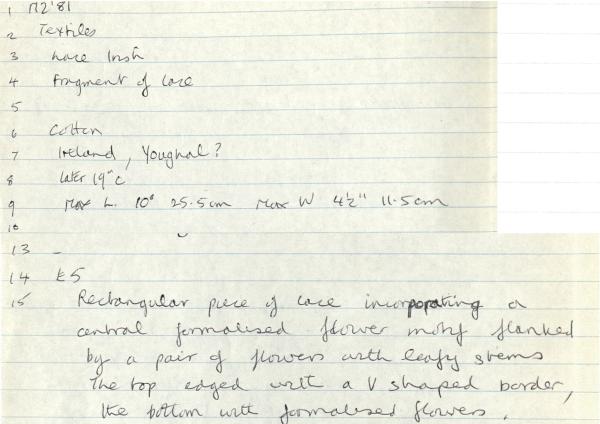 1 172'81
2 Textiles
3 Lace Irish
4 Fragment of Lace
5
6 Cotton
7 Ireland, Youghal?
8 later 19th c
9 Max L. 10" 25.5cm Max W 4½" 11.5cm
10
13 –
14 £5
15 Rectangular piece of lace incorporating a
central formalised flower motif flanked
by a pair of flowers with leafy stems
The top edged with a V shaped border,
the bottom with formalised flowers.